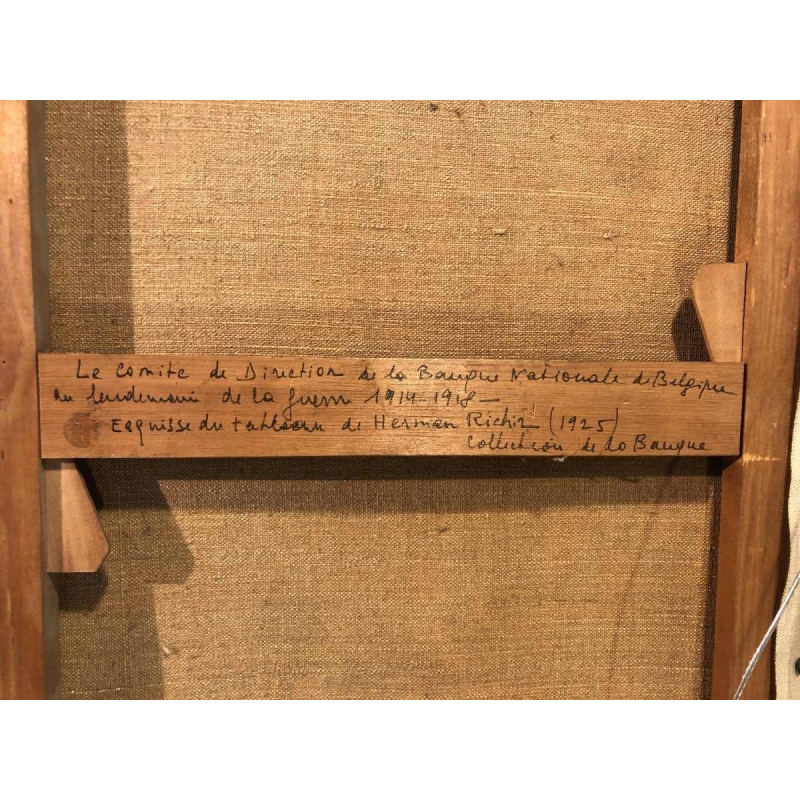 Le Comite de Direction de la Banque Nationale de Belgique
au lendemain de la guerre 1914-1918 -
Esquisse du tableau de Herman Richir (1925)
Collection de la Banque